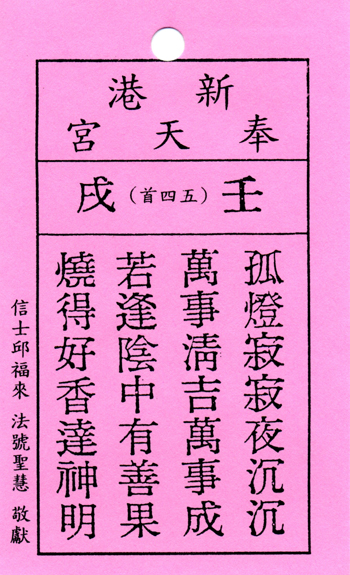 新港
奉天宮
壬（五四首）戌
孤燈寂寂夜沉沉
萬事清吉萬事成
若逢陰中有善果
燒得好香達神明
信士邱福來 法號聖慧 敬獻